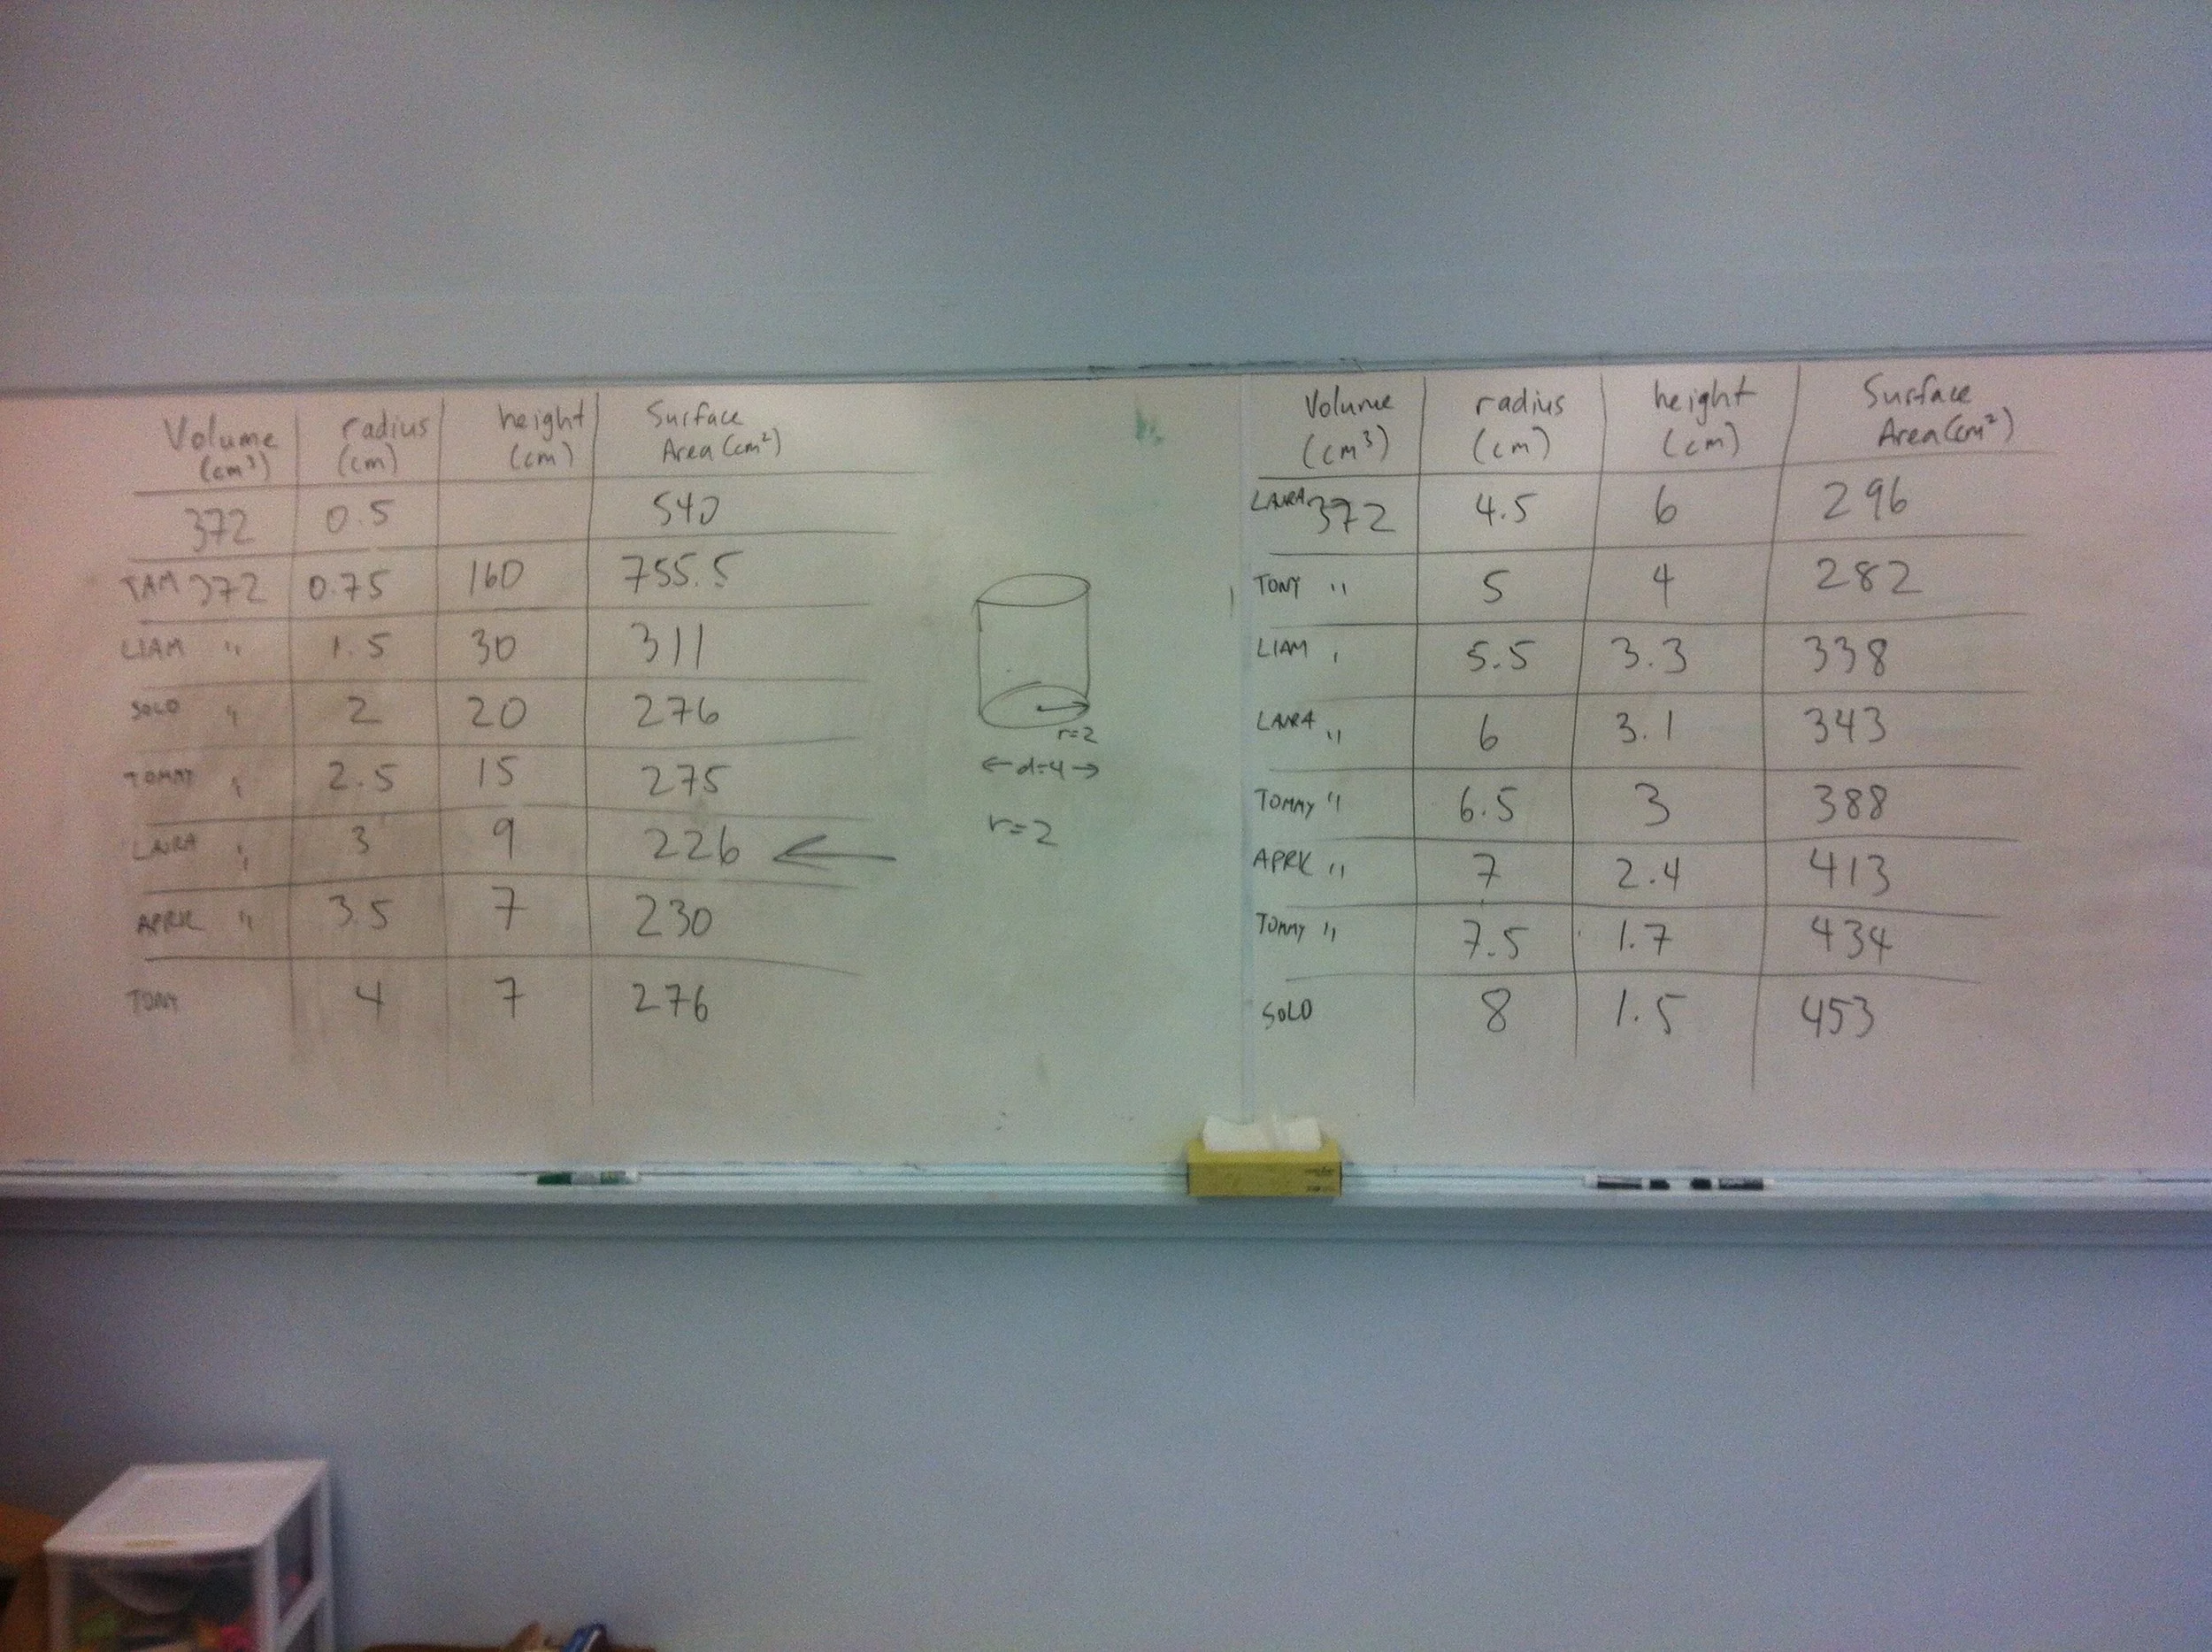 Volume (cm³) radius (cm) height (cm) Surface Area (cm²)
372 0.5 540
TAM 372 0.75 160 755.5
LIAM " 1.5 30 311
SOLO " 2 20 276
TOMMY " 2.5 15 275
LAURA " 3 9 226 ←
APRK " 3.5 7 230
TONY 4 7 276
r=2
←d=4→
r=2
Volume (cm³) radius (cm) height (cm) Surface Area (cm²)
LAURA 372 4.5 6 296
TONY " 5 4 282
LIAM " 5.5 3.3 338
LAURA " 6 3.1 343
TOMMY " 6.5 3 388
APRK " 7 2.4 413
TOMMY " 7.5 1.7 434
SOLO 8 1.5 453